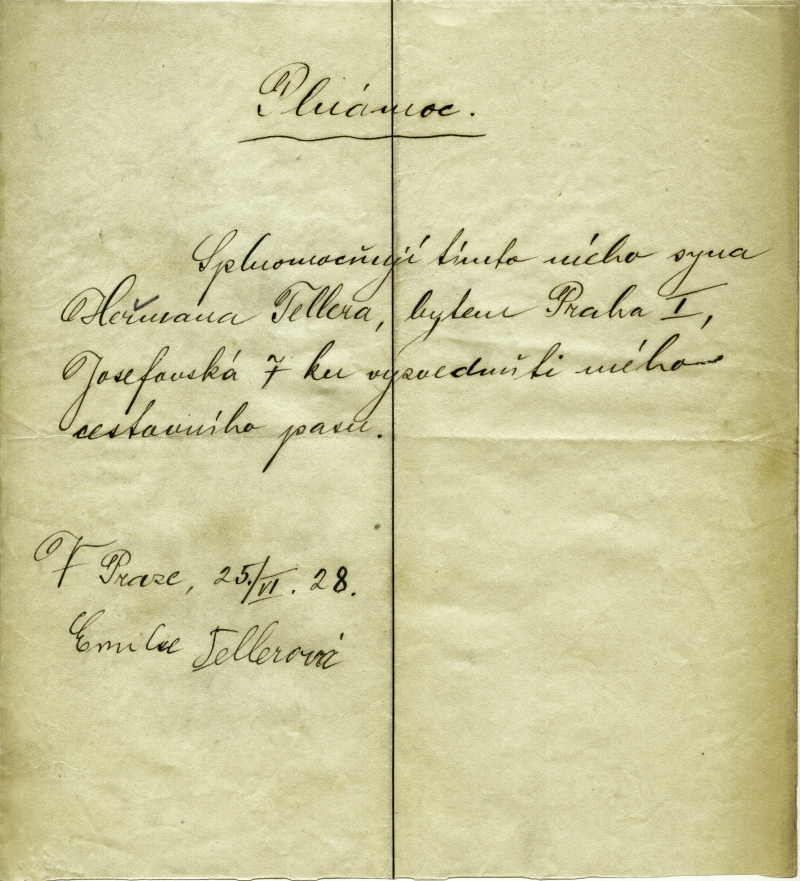 Plnámoc.
Splnomocňuji tímto mého syna
Heřmana Tellera, bytem Praha I,
Josefovská 7 ku vyzvednutí mého
cestovního pasu.
V Praze, 25./VI. 28.
Emilie Tellerová